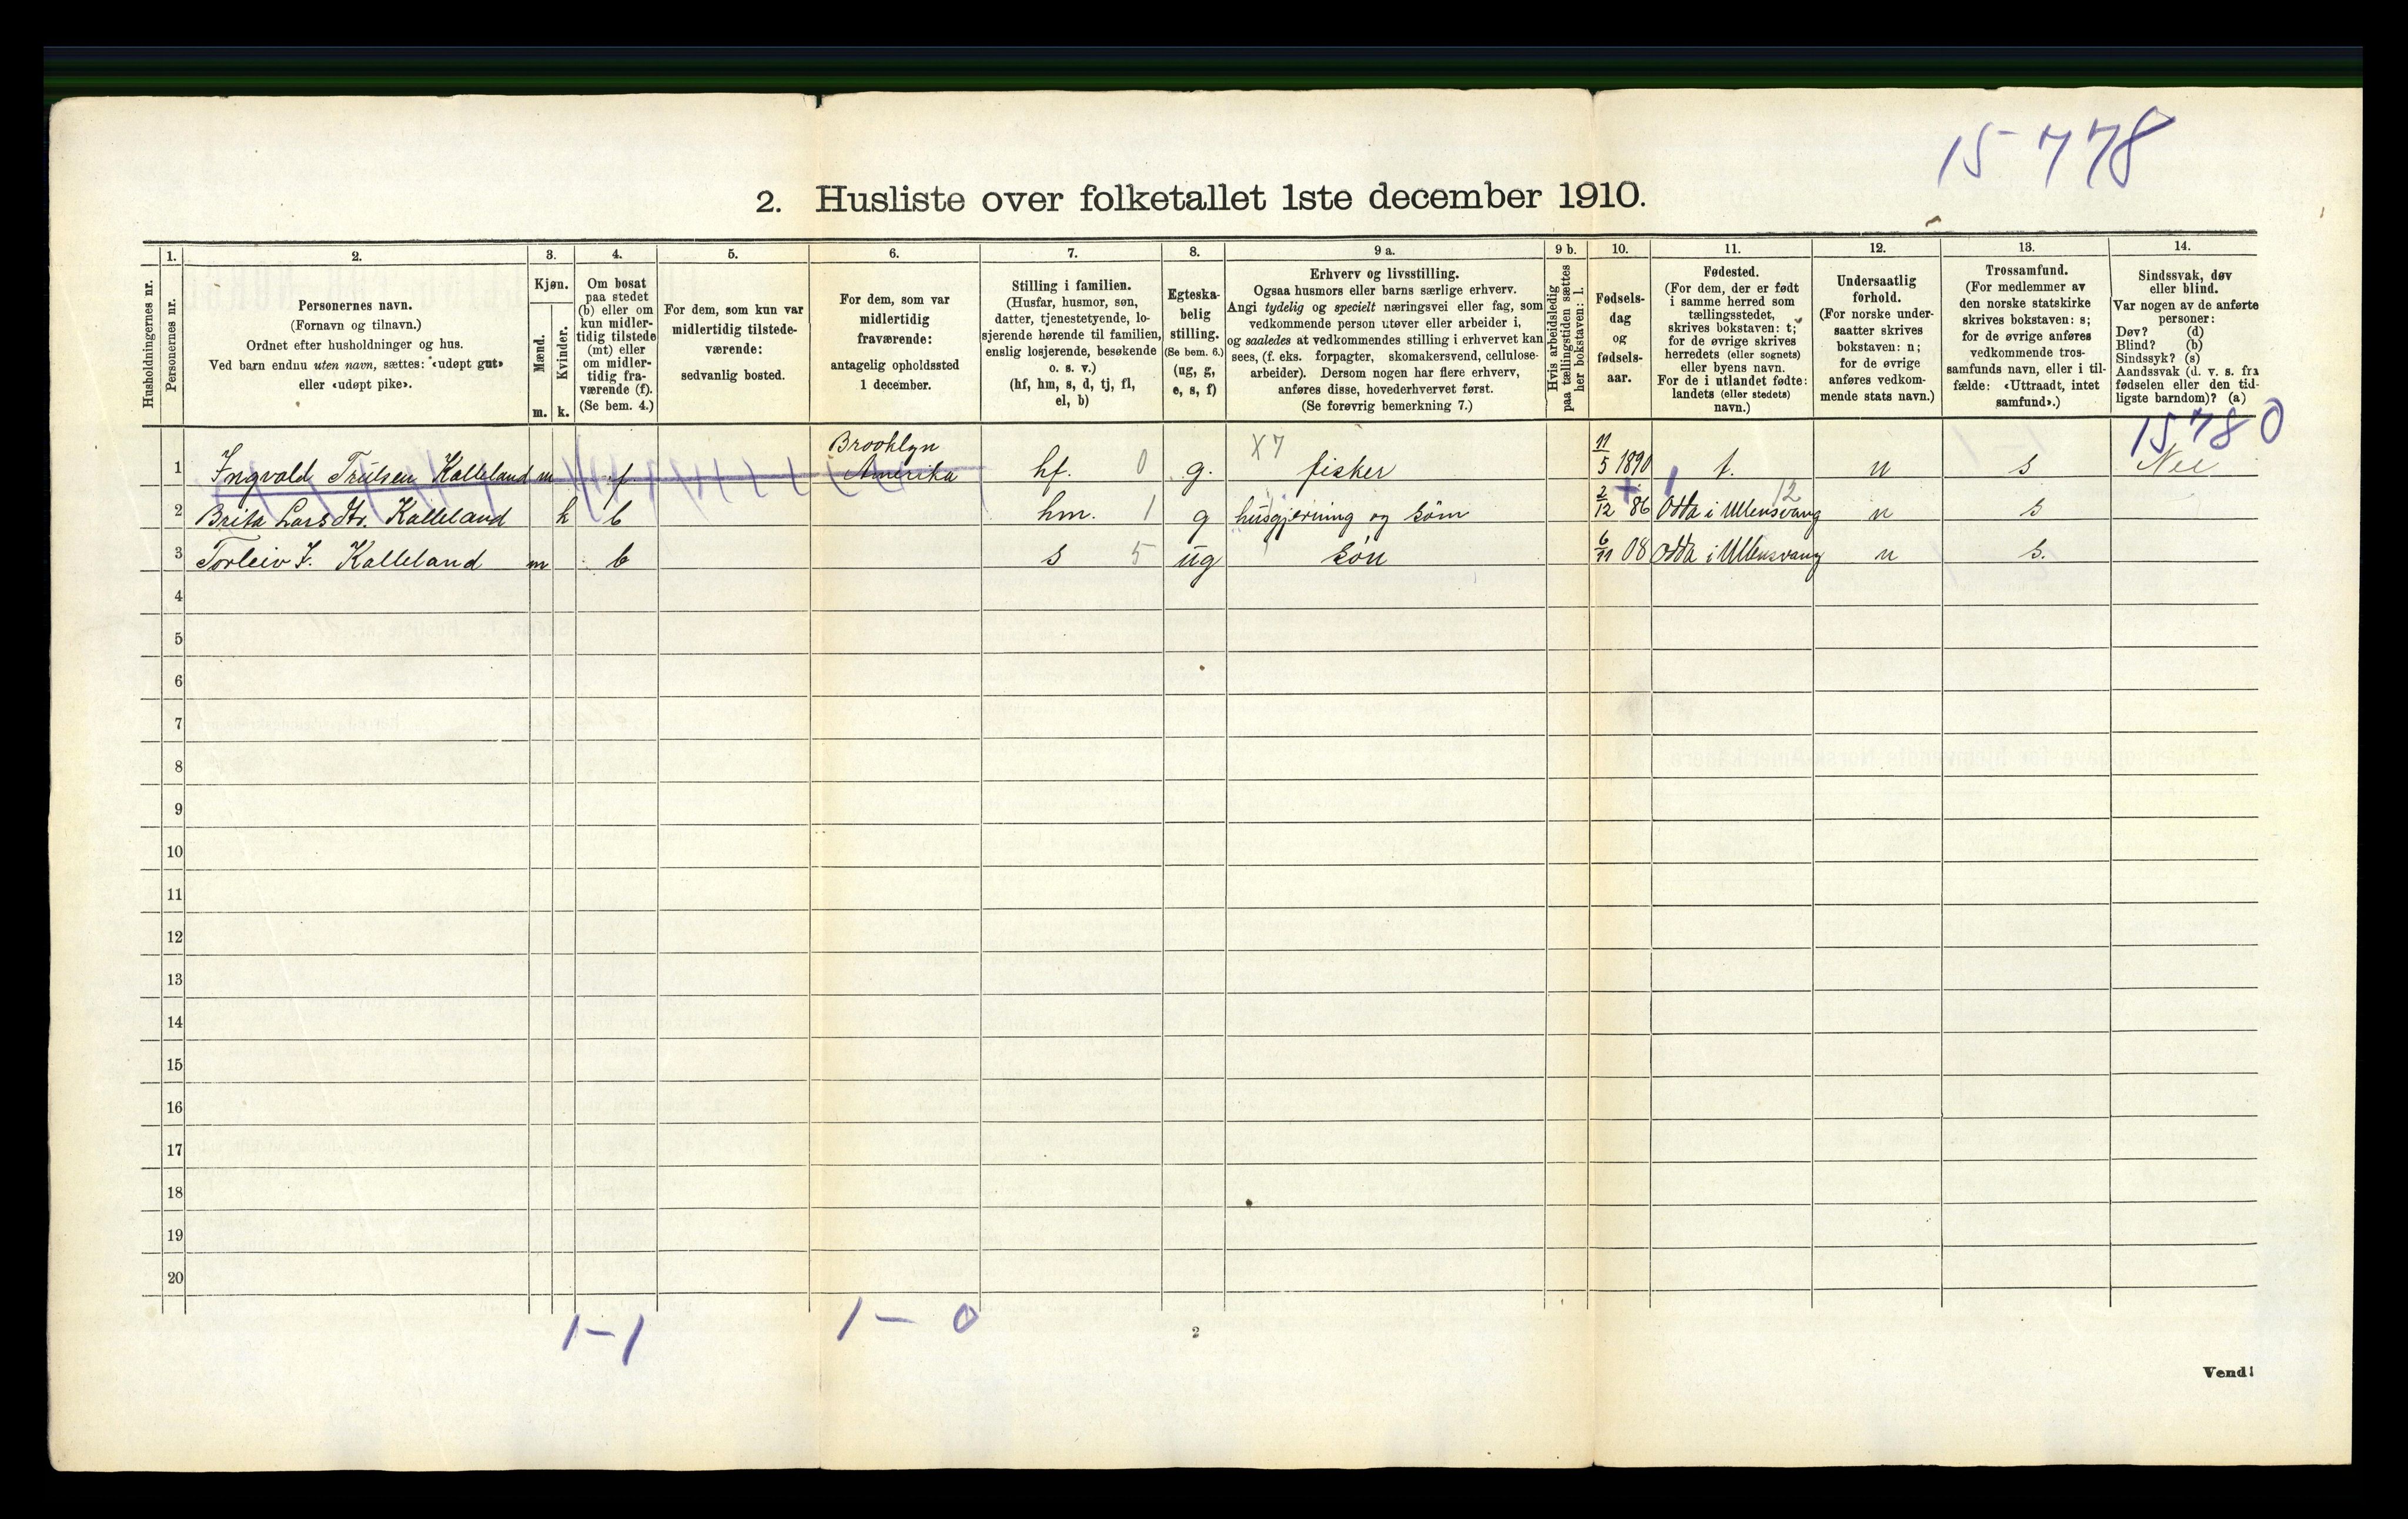 15778
2. Husliste over folketallet 1ste december 1910.
Husholdningernes nr.
1.
Personernes nr.
2.
Personernes navn.
(Fornavn og tilnavn.)
Ordnet efter husholdninger og hus.
Ved barn endnu uten navn, sættes: «udøpt gut»
eller «udøpt pike».
3.
Kjøn.
Mænd.
Kvinder.
m. k.
4.
Om bosat
paa stedet
(b) eller om
kun midler-
tidig tilstede
(mt) eller
om midler-
tidig fra-
værende (f).
(Se bem. 4.)
5.
For dem, som kun var
midlertidig tilstede-
værende:
sedvanlig bosted.
6.
For dem, som var
midlertidig
fraværende:
antagelig opholdssted
1 december.
7.
Stilling i familien.
(Husfar, husmor, søn,
datter, tjenestetyende, lo-
sjerende hørende til familien,
enslig losjerende, besøkende
o. s. v.)
(hf, hm, s, d, tj, fl,
el, b)
8.
Egteska-
belig
stilling.
(Se bem. 6.)
(ug, g,
e, s, f)
9 a.
Erhverv og livsstilling.
Ogsaa husmors eller barns særlige erhverv.
Angi tydelig og specielt næringsvei eller fag, som
vedkommende person utøver eller arbeider i,
og saaledes at vedkommendes stilling i erhvervet kan
sees, (f. eks. forpagter, skomakersvend, cellulose-
arbeider). Dersom nogen har flere erhverv,
anføres disse, hovederhvervet først.
(Se forøvrig bemerkning 7.)
9 b.
Hvis arbeidsledig
paa tællingstiden sættes
her bokstaven: l.
10.
Fødsels-
dag
og
fødsels-
aar.
11.
Fødested.
(For dem, der er født
i samme herred som
tællingsstedet,
skrives bokstaven: t;
for de øvrige skrives
herredets (eller sognets)
eller byens navn.
For de i utlandet fødte:
landets (eller stedets)
navn.)
12.
Undersaatlig
forhold.
(For norske under-
saatter skrives
bokstaven: n;
for de øvrige
anføres vedkom-
mende stats navn.)
13.
Trossamfund.
(For medlemmer av
den norske statskirke
skrives bokstaven: s;
for de øvrige anføres
vedkommende tros-
samfunds navn, eller i til-
fælde: «Uttraadt, intet
samfund».)
14.
Sindssvak, døv
eller blind.
Var nogen av de anførte
personer:
Døv? (d)
Blind? (b)
Sindssyk? (s)
Aandssvak (d. v. s. fra
fødselen eller den tid-
ligste barndom)? (a)
15780
1 Ingvald Trulsen Kalleland m f Brooklyn Amerika hf. 0 g. X7 fisker 11/5 1890 t. n s Nei
2 Brita Larsdtr. Kalleland k b hm. 1 g husgjerning og söm 2/12 86 Odda i Ullensvang 12 n s
3 Torleiv I. Kalleland m b s 5 ug sön 6/11 08 Odda i Ullensvang n s.
4
5
6
7
8
9
10
11
12
13
14
15
16
17
18
19
20
1-1
1-0
2
Vend!